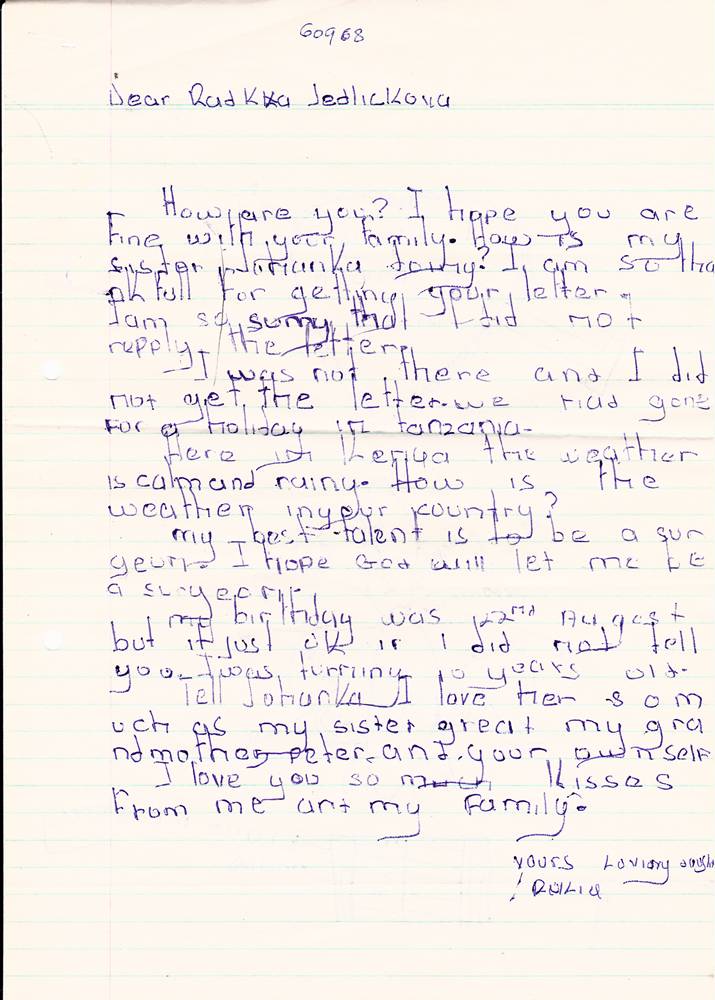 60968
Dear Radkka Jedlickova
How are you? I hope you are
fine with your family. How is my
sister doing? I am so tha
nkfull for getting your letter.
I am so surry that I did not
repply the letter.
I was not there and I did
not get the letter. we had gone
For a Holiday in tanzania.
Here in Kenya the weather
is calm and rainy. How is the
weather in your country?
my best talent is to be a sur
geurn. I Hope God will let me be
a surgeorn.
my birthday was 22nd August
but it just ok if I did not tell
you. I was turning 10 years old.
Tell Johanka I love her so m
uch as my sister great my gra
ndmother peter. and. your ownself
I love you so much Kisses
From me and my family.
YOURS Loving